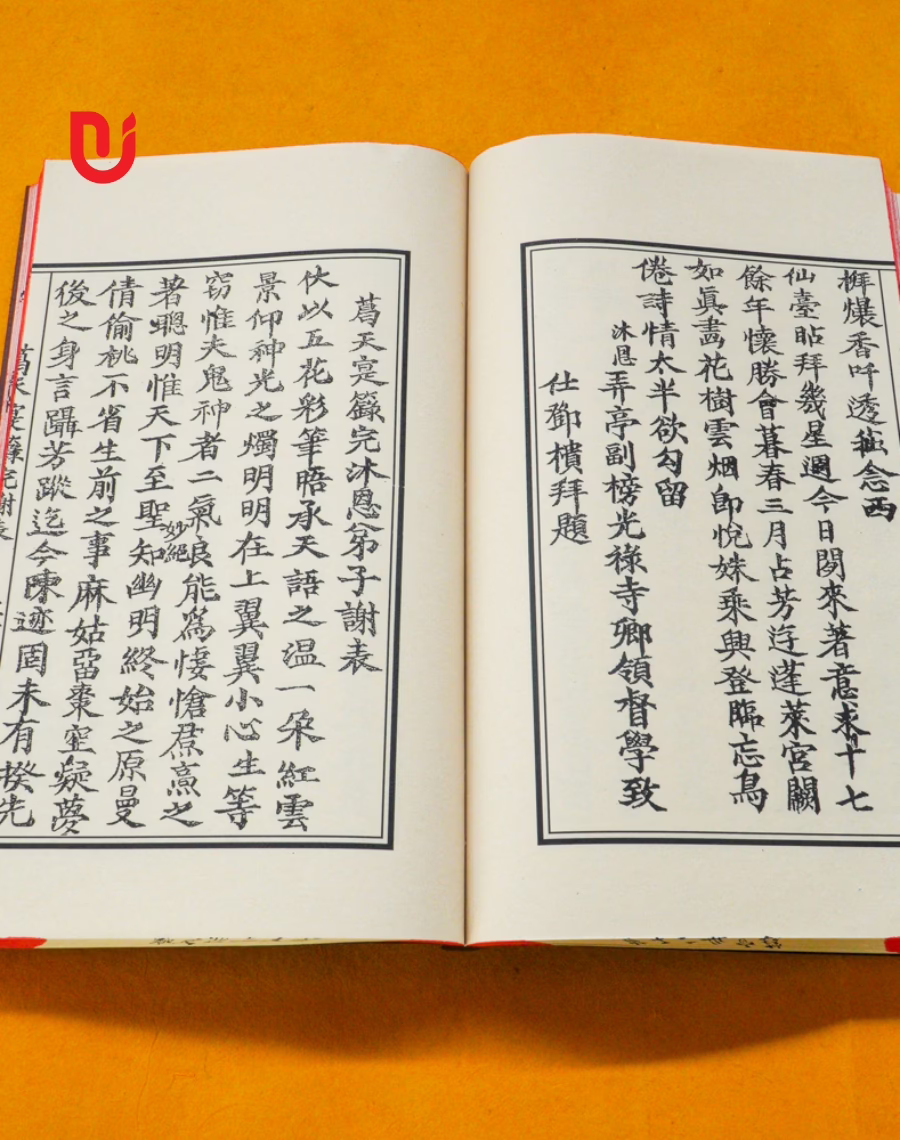 香透袖念西
仙臺拜幾星週今日閱來著意求十七
餘年懷勝會暮春三月占芳遊蓬萊宮闕
如眞畫花樹雲烟即悅姝乘興登臨忘鳥
倦詩情太半欲勾留
沐恩弄亭副榜光祿寺卿領督學致
仕鄧櫝拜題
葛天寔籙完沐恩弟子謝表
伏以五花彩筆晤承天語之温一朶紅雲
景仰神光之燭明明在上翼翼小心生等
窃惟夫鬼神者二氣良能爲悽愴焄之
著聰明惟天下至聖妙絕知幽明終始之原曼
倩偷桃不省生前之事麻姑留棗空疑夢
後之身言躡芳蹤迄今陳迹固未有揆先
謝表